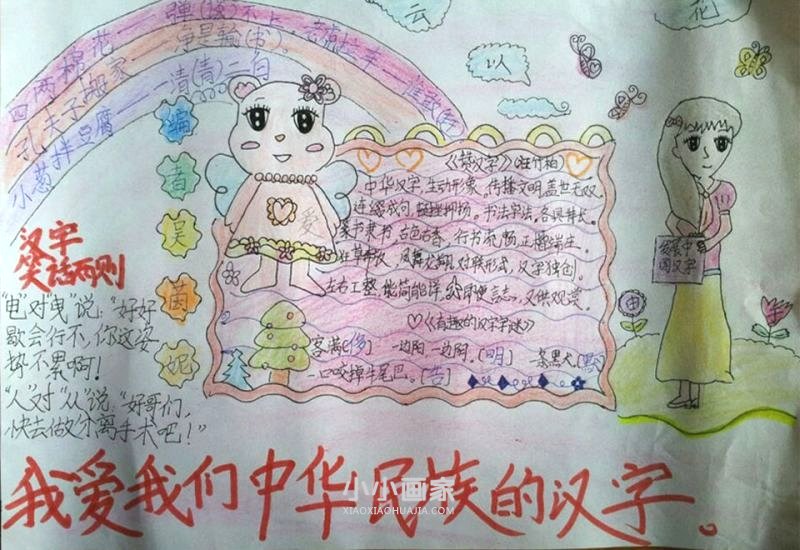 四两棉花——弹( )不上。
孔夫子搬家——净是输(书)。
小葱拌豆腐——一清(青)二白
云
以
花
编
者
吴
茵
妮
爱
《赞汉字》(汪竹柏)
中华汉字,生动形象,传播文明,盖世无双。
连缀成句,铿锵抑扬。书法字法,各具特长。
篆书隶书,古色古香,行书流畅,正楷端庄。
狂草奔放,凤舞龙翔,对联形式,汉字独创。
左右工整,能简能详,即便言志,又供观赏。
《有趣的汉字字谜》
客满(侈) 一边阳一边阴。(明) 一条黑犬。(默)
一口咬掉牛尾巴。(告)
汉字
笑话两则
"电"对"曳"说:"好好
歇会行不,你这姿
势不累啊!
"人"对"从"说:"好哥们,
快去做分离手术吧!"
发展中
国汉字
中
字
我爱我们中华民族的汉字。
小小画家
XIAOXIAOHUAJIA.COM